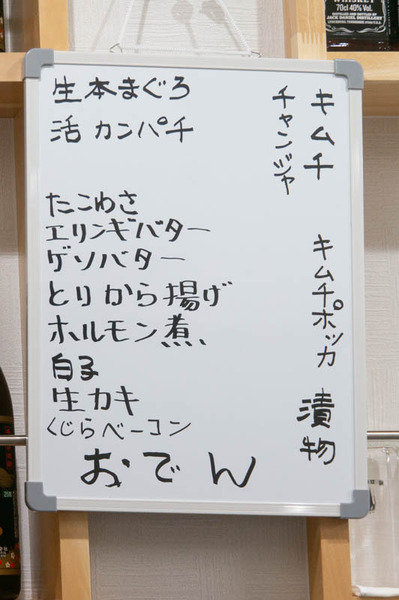 WHISKEY
70cl 40% Vol.
DISTILLED AND BOTTLED BY
JACK DANIEL DISTILLERY
生本まぐろ
活カンパチ
たこわさ
エリンギバター
ゲソバター
とりから揚げ
ホルモン煮
白子
生カキ
くじらベーコン
おでん
キムチ
チャンジャ
キムチポッカ
漬物